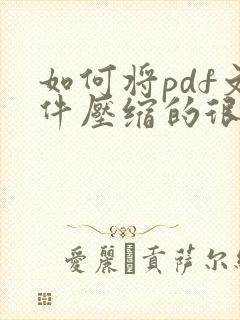 如何将pdf文
件壓缩的很
愛麗 貢萨尔